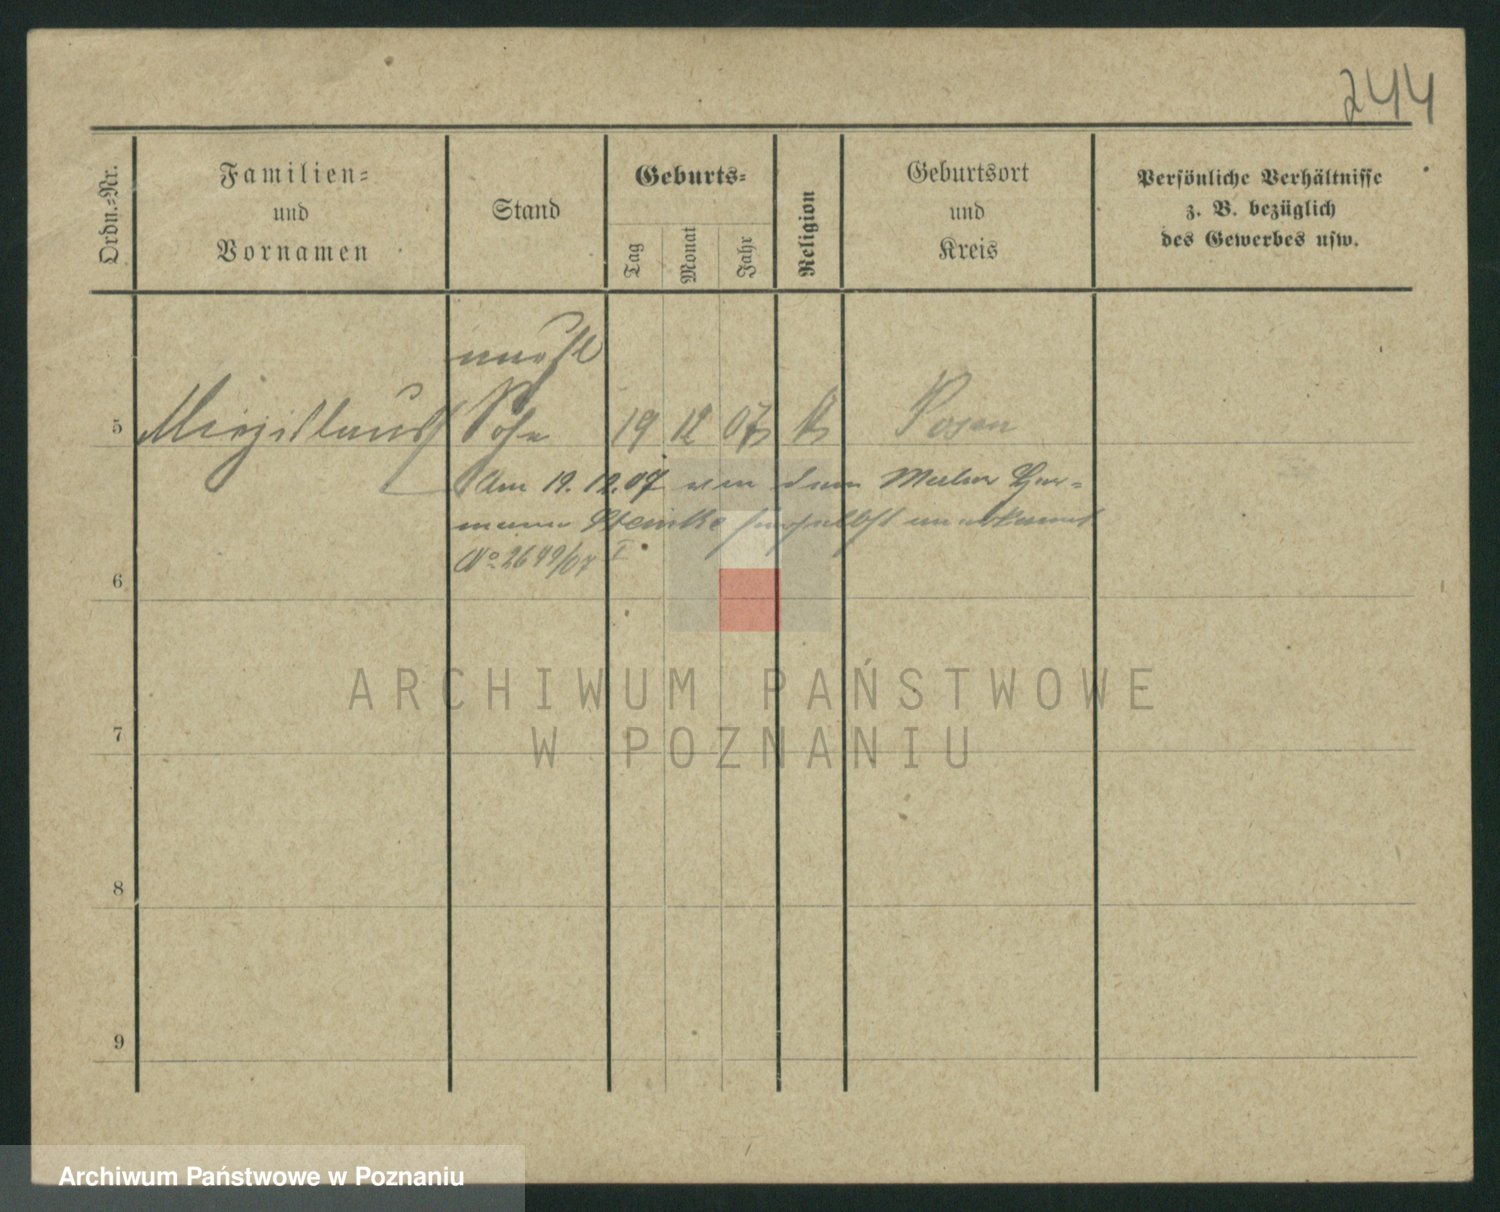 244
Ordn.-Nr.
Familien-
und
Vornamen
Stand
Geburts-
Tag
Monat
Jahr
Religion
Geburtsort
und
Kreis
Persönliche Verhältnisse
z. B. bezüglich
des Gewerbes usw.
unehl
5 Sohn 19 12 07 k Posen
Am 19. 12. 07 von dem Maler Her-
mann Steinke anerkannt
6 No 2649/07 I
ARCHIWUM PAŃSTWOWE
W POZNANIU
7
8
9
Archiwum Państwowe w Poznaniu